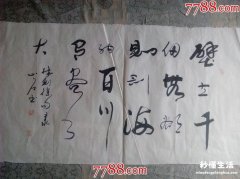 7788.com
7788.com
壁立千
仞無欲
则刚海
纳百川
有容乃
大
林则徐句
秒懂生活